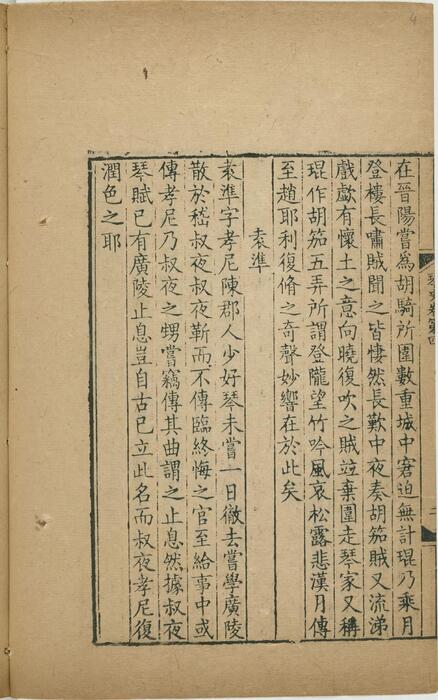 在晉陽嘗為胡騎所圍數重城中窘迫無計琨乃乘月
登樓長嘯賊聞之皆悽然長歎中夜奏胡笳賊又流涕
戲歔有懷土之意向曉復吹之賊竝棄圍走琴家又稱
琨作胡笳五弄所謂登隴望竹吟風哀松露悲漢月傳
至趙耶利復脩之奇聲妙響在於此矣
袁準
袁準字孝尼陳郡人少好琴未嘗一日徹去嘗學廣陵
散於嵇叔夜叔夜靳而不傳臨終悔之官至給事中或
傳孝尼乃叔夜之甥嘗竊傳其曲謂之止息然據叔夜
琴賦已有廣陵止息豈自古已立此名而叔夜孝尼復
潤色之耶